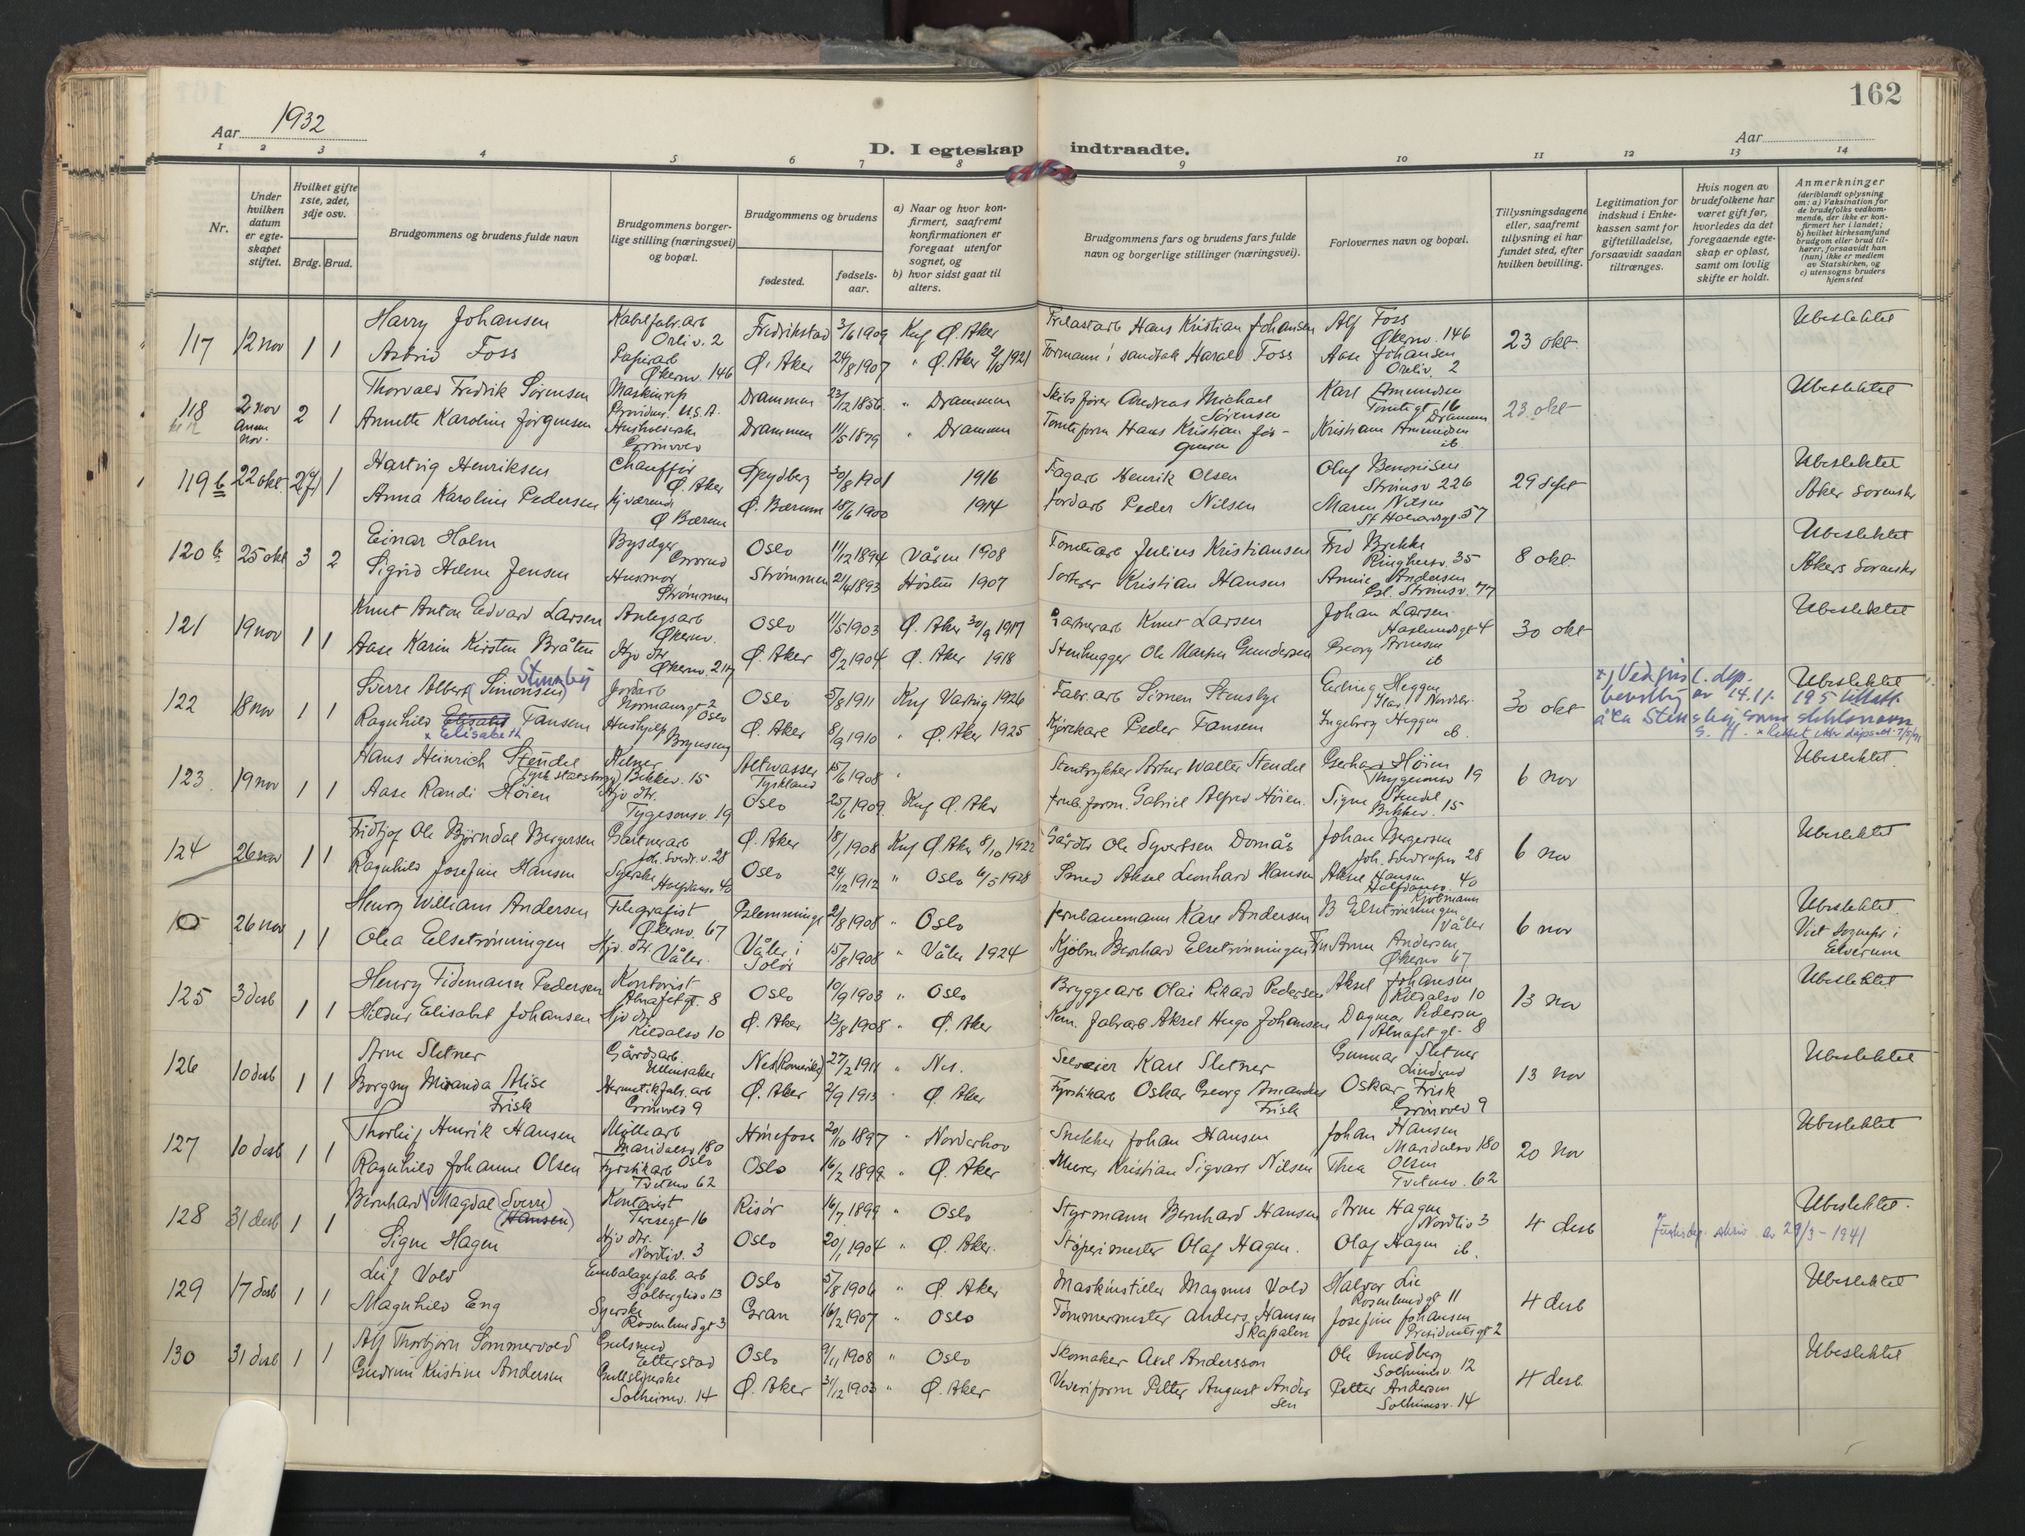 162
Aar 1932
Aar
D. I egteskap indtraadte.
1 2 3 4 5 6 7 8 9 10 11 12 13 14
Nr.
Under hvilken datum er egteskapet stiftet.
Hvilket gifte 1ste, 2det, 3dje osv.
Brdg. Brud.
Brudgommens og brudens fulde navn
Brudgommens borgerlige stilling (næringsvei) og bopæl.
Brudgommens og brudens
fødested.
fødselsaar.
a) Naar og hvor konfirmert, saafremt konfirmationen er foregaat utenfor sognet, og
b) hvor sidst gaat til alters.
Brudgommens fars og brudens fars fulde navn og borgerlige stillinger (næringsvei).
Forlovernes navn og bopæl.
Tillysningsdagene eller, saafremt tillysning ei har fundet sted, efter hvilken bevilling.
Legitimation for indskud i Enkekassen samt for giftetilladelse, forsaavidt saadan tiltrænges.
Hvis nogen av brudefolkene har været gift før, hvorledes da det foregaaende egteskap er opløst, samt om lovlig skifte er holdt.
Anmerkninger (deriblandt oplysning om: a) Vaksination for de brudefolks vedkommende, der ikke er konfirmert her i landet; b) hvilket kirkesamfund brudgom eller brud tilhører, forsaavidt han (nun) ikke er medlem av Statskirken, og c) utensogns bruders hjemsted
117 12 nov 1 1 Harry Johansen Kabelfabr.arb Orliv. 2 Fredrikstad 3/6 1909 Knf Ø. Aker Hans Kristian Johansen Alf Foss Økernv. 146 23 okt Ubeslektet
Astrid Foss Papirarb Økernv. 146 Ø. Aker 24/8 1907 " Ø. Aker 1921 Formann i sandtak Harald Foss Aase Johansen Oreliv. 2
118 2 nov 2 1 Thorvald Fredrik Sørensen Maskinrep U.S.A. Drammen 23/12 1856 " Drammen Skibsfører Andreas Michael Sørensen Karl Amundsen Tomtegt 16 Drammen 23 okt Ubeslektet
Annette Karoline Jørgensen Husholderske Drammen 11/5 1879 " Drammen Tomteform Hans Kristian Jørgensen Kristiane Amundsen ib
119 b 22 okt 2 1 Hartvig Henriksen Chauffør Ø. Aker Spydberg 30/8 1901 1916 Fagarb Henrik Olsen Oluf Benonisen Strømsv 226 29 sept Ubeslektet
Anna Karoline Pedersen Ø Bærum Ø. Bærum 18/6 1900 1914 Jordarb Peder Nilsen Maren Nilsen St Halvardsgt. 57 Aker Sorenskr
120 b 25 okt 3 2 Einar Holm Grorud Oslo 11/12 1894 Våren 1908 Tomtearb Julius Kristiansen Fred Brekke Ringhusv. 35 8 okt Ubeslektet
Sigrid Helene Jensen Husmor Strømmen Strømmen 21/4 1893 Høsten 1907 Sorterer Kristian Hansen Annie Andersen Gl. Strømsv. 77 Akers Sorenskr
121 19 nov 1 1 Knut Anton Edvard Larsen Anlegsarb Økernv. Oslo 11/5 1903 Ø. Aker 30/9 1917 Knut Larsen Johan Larsen Haslundsgt 4 30 okt Ubeslektet
Aase Karin Kirsten Bråten Hjv dtr Økernv. 217 Ø. Aker 8/2 1904 Ø. Aker 1918 Stenhugger Ole Martin Gundersen Georg Arnesen ib
122 18 nov 1 1 Sverre Albert (Simonsen) Stensby Jordarb Normannsgt 2 Oslo Oslo 5/8 1911 Knf Vestvig 1926 Fabr.arb Simen Stensbye Erling Heggen 30 okt Ubeslektet
Ragnhild Elisabet Fansem × Elisabeth Hushjelp Brynseng Ø. Aker 8/9 1910 " Ø. Aker 1925 Kjørekarl Peder Fansem Ingeborg Heggen ib.
×) Ved Justisdep. bevilling av 14.11. 1951
å ta Stensby som slektsnavn
123 19 nov 1 1 Hans Heinrich Stendel (Tysk statsborg.) Kelner Bekkev. 15 Altwasser Tyskland 15/6 1908 " Stentrykker Artur Walter Stendel Gerhard Høien Thygesonsv 19 6 nov Ubeslektet.
Aase Randi Høien Hjv dtr. Tygesonsv. 19 Oslo 25/6 1909 Knf Ø. Aker Jernb.form. Gabriel Alfred Høien. Signe Stendel Bekkev. 15
124 26 nov 1 1 Fridtjof Ole Bjørndal Bergersen Gartnerarb Joh. Svedr.v. 28 Ø. Aker 18/1 1908 Knf Ø. Aker 8/10 1922 Gårdbr Ole Syvertsen Domås Johan Bergersen 28 6 nov Ubeslektet
Ragnhild Josefine Hansen Syerske Halfdansv 40 Oslo 24/12 1912 " Oslo 6/5 1928 Smed Aksel Leonhard Hansen Aksel Hansen Halfdansv. 40
26 nov 1 1 Henry William Andersen Telegrafist Økernv. 67 2/8 1908 " Oslo Jernbanemann Karl Andersen Kjøbmann B Elsetrønningen Våler 6 nov Ubeslektet.
Olea Elsetrønningen Hjv dtr Våler. Våler i Solør 15/8 1908 " Våler 1924 Kjøbm Bernhard Elsetrønningen Fru Anna Andersen Økernv 67 Viet Sognepr i Elverum
125 3 desb 1 1 Henry Tidemann Pedersen Kontorist Almafetgt. 8 Oslo 10/9 1903 " Oslo Bryggearb Olai Rikard Pedersen Aksel Johansen Kildalsv 10 13 nov Ubeslektet
Hildur Elisabet Johansen Hjv dtr Kildalsv 10 Ø. Aker 13/8 1908 " Ø. Aker Kem. Fabrarb Aksel Hugo Johansen Dagmar Pedersen Almafetgt. 8
126 10 desb 1 1 Arne Sletner Gårdsarb. Ullensaker Nes (Romerike) 27/2 1911 " Nes. Selveier Karl Sletner Gunnar Sletner Linderud 13 nov Ubeslektet
Borgny Miranda Alise Frisk Hermetikfabr.arb 9 Ø. Aker 2/9 1913 Ø. Aker Fyrstikarb Oskar Georg Amandus Frisk Oskar Frisk 9
127 10 desb 1 1 Thorleif Henrik Hansen Møllearb Maridalsv 180 Oslo Hønefoss 20/10 1897 " Norderhov Snekker Johan Hansen Johan Hansen Maridalsv 180 20 nov Ubeslektet
Ragnhild Johanne Olsen Fyrstikarb Tvetenv 62 Oslo 16/2 1899 " Ø. Aker Murer Kristian Sigvart Nilsen Thea Olsen Tvetenv. 62
128 31 desb 1 1 Bernhard (Magdal Sverre) (Hansen) Kontorist Teresegt 16 Risør 16/7 1899 " Oslo Styrmann Bernhard Hansen Arne Hagen Nordliv 3 4 desb Ubeslektet.
Signe Hagen Hjv dtr. Nordliv. 3 Oslo 20/1 1904 " Ø. Aker. Støperimester Olaf Hagen. Olaf Hagen ib. Justisdep. skriv av 29/3 - 1941
129 17 desb 1 1 Leif Vold Embalagefab. arb Solbergliv 13 Oslo 5/8 1906 " Ø. Aker Maskinstiller Magnus Vold Halvor Lie Rosenlundgt 11 4 desb Ubeslektet
Magnhild Eng Syerske Rosenlundgt 3 Gran 16/2 1907 " Oslo Tømmermester Anders Hansen Skapalen Josefine Johansen Presidentsgt 2
130 31 desb 1 1 Alf Thorbjørn Sommervold Gulsmed Etterstad Oslo 9/11 1908 " Oslo Skomaker Axel Andersson Ole Gundberg Solheimsv. 12 4 desb. Ubeslektet
Gudrun Kristine Andersen Gullsliperske Solheimv. 14 Ø. Aker 31/12 1903 " Ø. Aker Veveriform Petter August Andersen Petter Andersen Solheimsv. 14